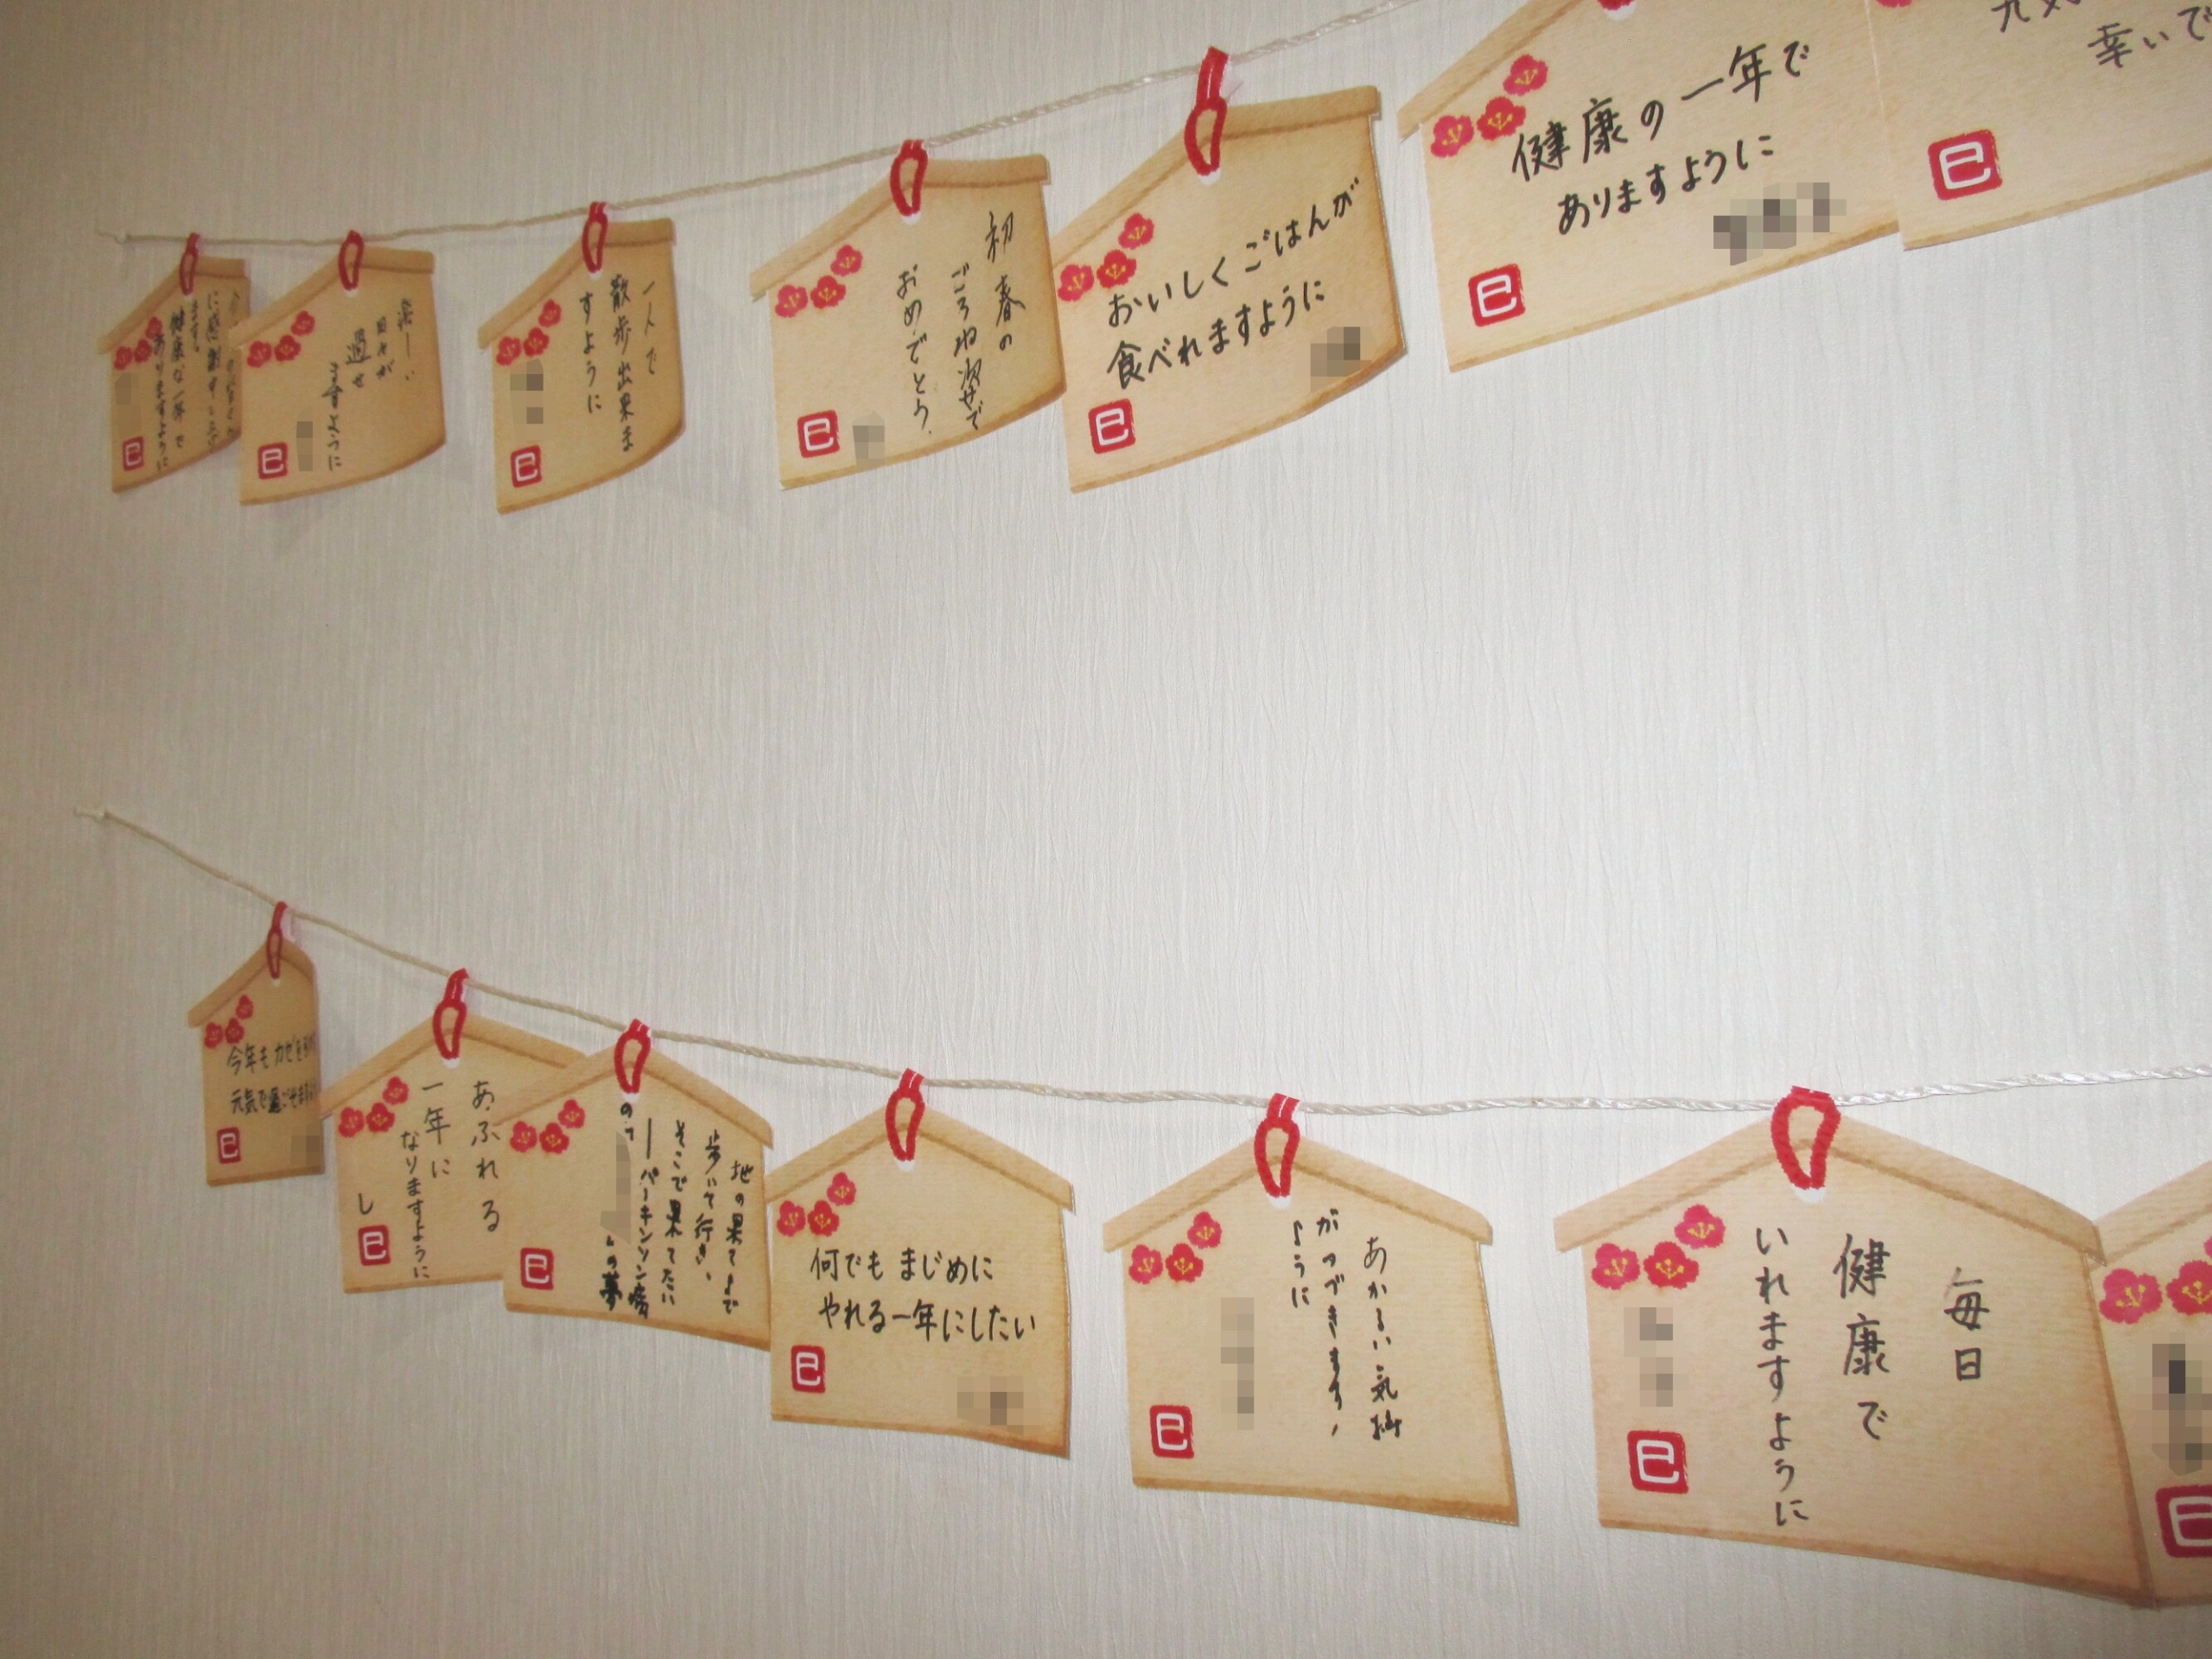 に感謝す
ます。
健康な一年で
ありますように
巳
楽しい
日々が
過せ
ますように
巳
一人で
散歩出来ま
すように
巳
初春の
ごろね姿で
おめでとう
巳
おいしくごはんが
食べれますように
巳
健康の一年で
ありますように
巳
幸いで
巳
今年もカゼを
元気で過ごせます
巳
あふれる
一年に
なりますように
し
巳
地の果てまで
歩いて行き、
そこで果てたい
パーキンソン病
の夢
巳
何でもまじめに
やれる一年にしたい
巳
あかるい気持
がつづきます
ように
巳
毎日
健康で
いれますように
巳
巳